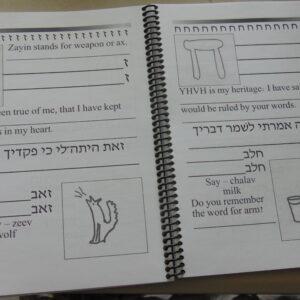 Zayin stands for weapon or ax.
ז
ז
een true of me, that I have kept
s in my heart.
זאת היתה־לי כי פקדיך
זאב
זאב
y – zeev
wolf
ח
YHVH is my heritage. I have sa
would be ruled by your words.
ה אמרתי לשמר דבריך
חלב
חלב
Say – chalav
milk
Do you remember
the word for arm!